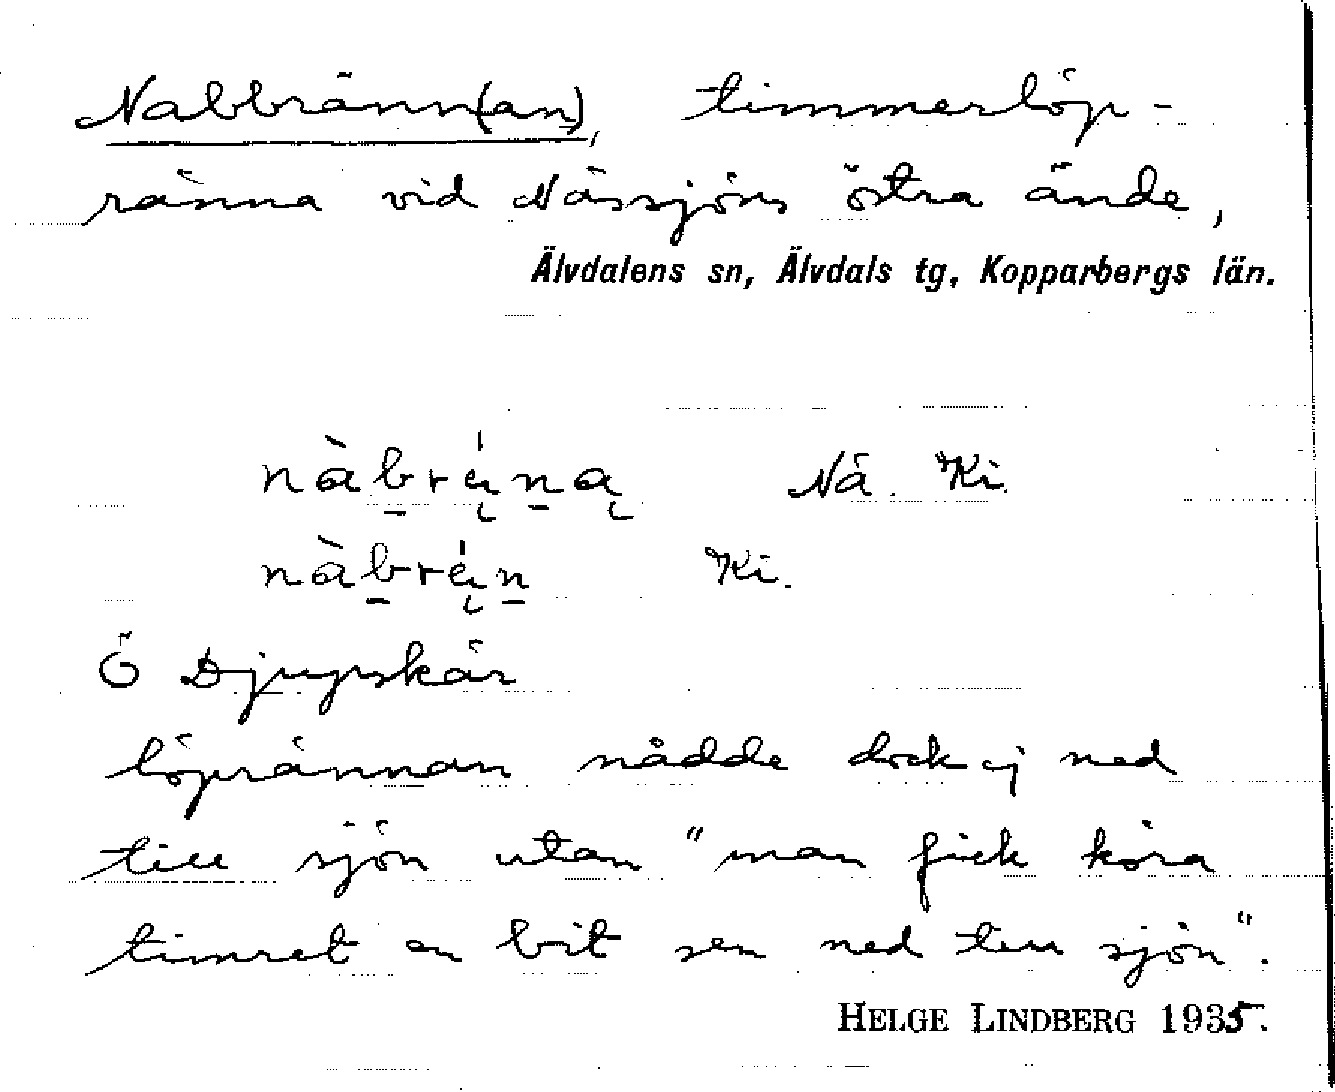 Nabbränn(an), timmerlöp-
ränna vid Nässjöns östra ände,
Älvdalens sn, Älvdals tg, Kopparbergs län.
Nä. Ki.
Ki.
Ö Djupskär
löprännan nådde dock ej ned
till sjön utan "man fick köra
timret en bit sen ned till sjön".
HELGE LINDBERG 1935.